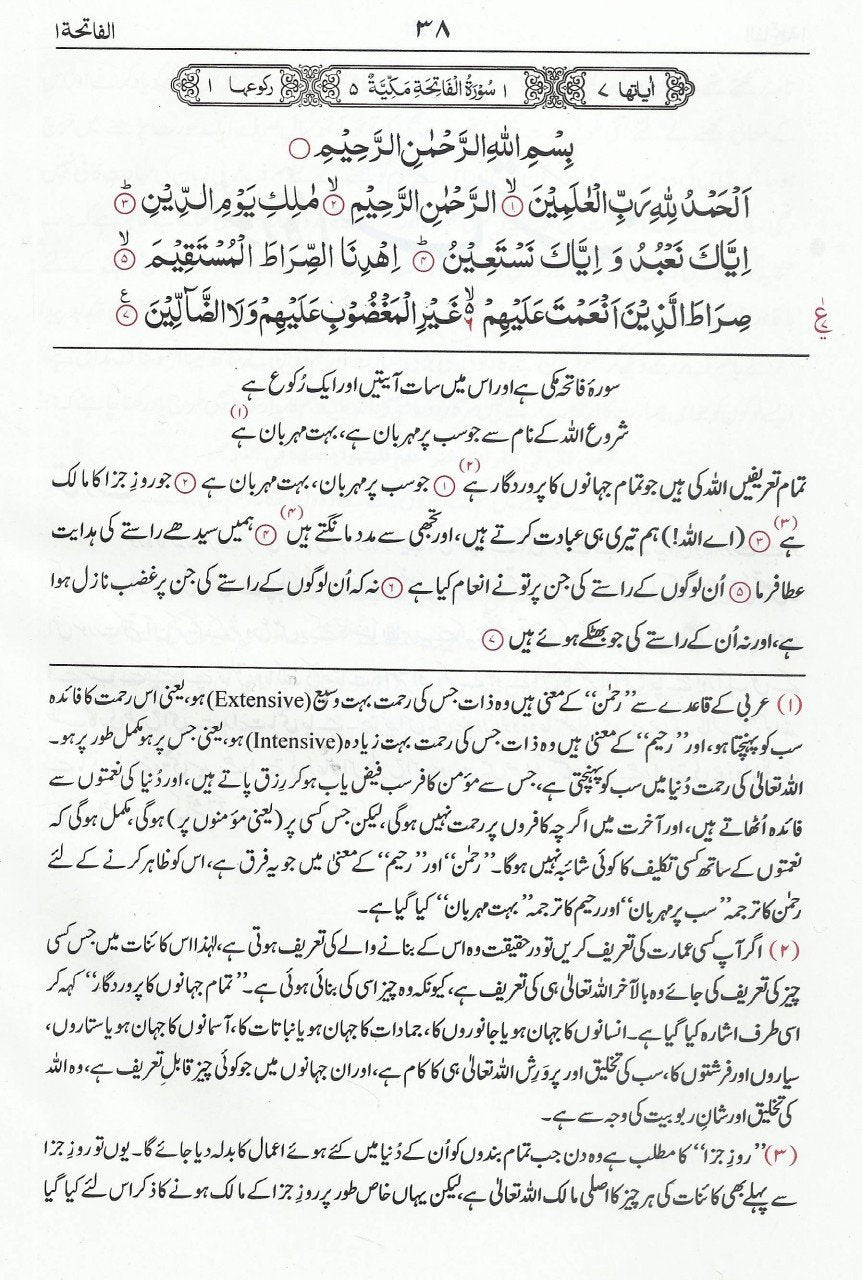 الفاتحة ١
٣٨
اٰیاتها ٧
١ سُوْرَةُ الْفَاتِحَةِ مَکِّیَّةٌ ٥
رکوعها ١
بِسْمِ اللّٰهِ الرَّحْمٰنِ الرَّحِیْمِ ○
اَلْحَمْدُ لِلّٰهِ رَبِّ الْعٰلَمِیْنَ ۙ﴿١﴾ الرَّحْمٰنِ الرَّحِیْمِ ۙ﴿٢﴾ مٰلِكِ یَوْمِ الدِّیْنِ ؕ﴿٣﴾
اِیَّاكَ نَعْبُدُ وَ اِیَّاكَ نَسْتَعِیْنُ ؕ﴿٤﴾ اِهْدِنَا الصِّرَاطَ الْمُسْتَقِیْمَ ۙ﴿٥﴾
صِرَاطَ الَّذِیْنَ اَنْعَمْتَ عَلَیْهِمْ ۙ۬٦ غَیْرِ الْمَغْضُوْبِ عَلَیْهِمْ وَلَا الضَّآلِّیْنَ ﴿٧﴾
سورۂ فاتحہ مکی ہے اور اس میں سات آیتیں اور ایک رُکوع ہے
شروع اللہ کے نام سے جو سب پر مہربان ہے، بہت مہربان ہے (۱)
تمام تعریفیں اللہ کی ہیں جو تمام جہانوں کا پروردگار ہے (۲) ﴿۱﴾ جو سب پر مہربان، بہت مہربان ہے ﴿۲﴾ جو روزِ جزا کا مالک
ہے (۳) ﴿۳﴾ (اے اللہ!) ہم تیری ہی عبادت کرتے ہیں، اور تجھی سے مدد مانگتے ہیں (۴) ﴿۴﴾ ہمیں سیدھے راستے کی ہدایت
عطا فرما ﴿۵﴾ اُن لوگوں کے راستے کی جن پر تو نے انعام کیا ہے ﴿۶﴾ نہ کہ اُن لوگوں کے راستے کی جن پر غضب نازل ہوا
ہے، اور نہ اُن کے راستے کی جو بھٹکے ہوئے ہیں ﴿۷﴾
(۱) عربی کے قاعدے سے ”رحمٰن“ کے معنیٰ ہیں وہ ذات جس کی رحمت بہت وسیع (Extensive) ہو، یعنی اس رحمت کا فائدہ
سب کو پہنچتا ہو، اور ”رحیم“ کے معنیٰ ہیں وہ ذات جس کی رحمت بہت زیادہ (Intensive) ہو، یعنی جس پر ہو مکمل طور پر ہو۔
اللہ تعالیٰ کی رحمت دُنیا میں سب کو پہنچتی ہے، جس سے مؤمن کافر سب فیض یاب ہو کر رزق پاتے ہیں، اور دُنیا کی نعمتوں سے
فائدہ اُٹھاتے ہیں، اور آخرت میں اگرچہ کافروں پر رحمت نہیں ہوگی، لیکن جس کسی پر (یعنی مؤمنوں پر) ہوگی، مکمل ہوگی کہ
نعمتوں کے ساتھ کسی تکلیف کا کوئی شائبہ نہیں ہوگا۔ ”رحمٰن“ اور ”رحیم“ کے معنیٰ میں جو یہ فرق ہے، اس کو ظاہر کرنے کے لئے
رحمٰن کا ترجمہ ”سب پر مہربان“ اور رحیم کا ترجمہ ”بہت مہربان“ کیا گیا ہے۔
(۲) اگر آپ کسی عمارت کی تعریف کریں تو در حقیقت وہ اس کے بنانے والے کی تعریف ہوتی ہے، لہٰذا اس کائنات میں جس کسی
چیز کی تعریف کی جائے وہ بالآخر اللہ تعالیٰ ہی کی تعریف ہے، کیونکہ وہ چیز اسی کی بنائی ہوئی ہے۔ ”تمام جہانوں کا پروردگار“ کہہ کر
اسی طرف اشارہ کیا گیا ہے۔ انسانوں کا جہان ہو یا جانوروں کا، جمادات کا جہان ہو یا نباتات کا، آسمانوں کا جہان ہو یا ستاروں،
سیاروں اور فرشتوں کا، سب کی تخلیق اور پرورِش اللہ تعالیٰ ہی کا کام ہے، اور ان جہانوں میں جو کوئی چیز قابلِ تعریف ہے، وہ اللہ
کی تخلیق اور شانِ ربوبیت کی وجہ سے ہے۔
(۳) ”روزِ جزا“ کا مطلب ہے وہ دن جب تمام بندوں کو اُن کے دُنیا میں کئے ہوئے اعمال کا بدلہ دیا جائے گا۔ یوں تو روزِ جزا
سے پہلے بھی کائنات کی ہر چیز کا اصلی مالک اللہ تعالیٰ ہے، لیکن یہاں خاص طور پر روزِ جزا کے مالک ہونے کا ذکر اس لئے کیا گیا